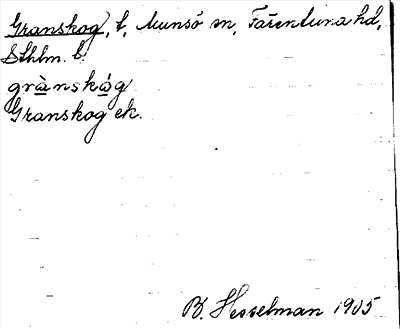 Granskog, t, Munsö sn, Färentuna hd,
Sthlm. l.
grànskág
Granskog ek.
B. Hesselman 1905